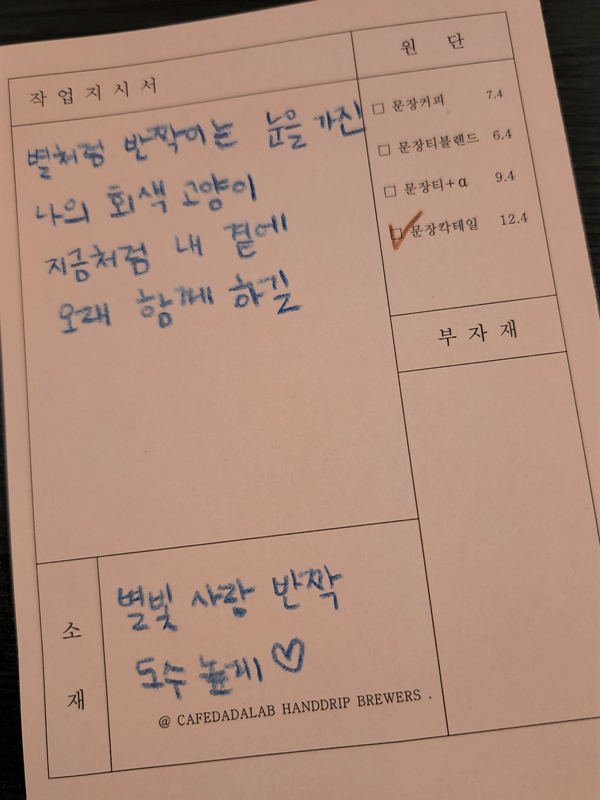 작업지시서
별처럼 반짝이는 눈을 가진
나의 회색 고양이
지금처럼 내 곁에
오래 함께 하길
원 단
문장커피 7.4
문장티블렌드 6.4
문장티+α 9.4
문장칵테일 12.4
부자재
소재
별빛 사랑 반짝
도수 높게♡
@ CAFEDADALAB HANDDRIP BREWERS .